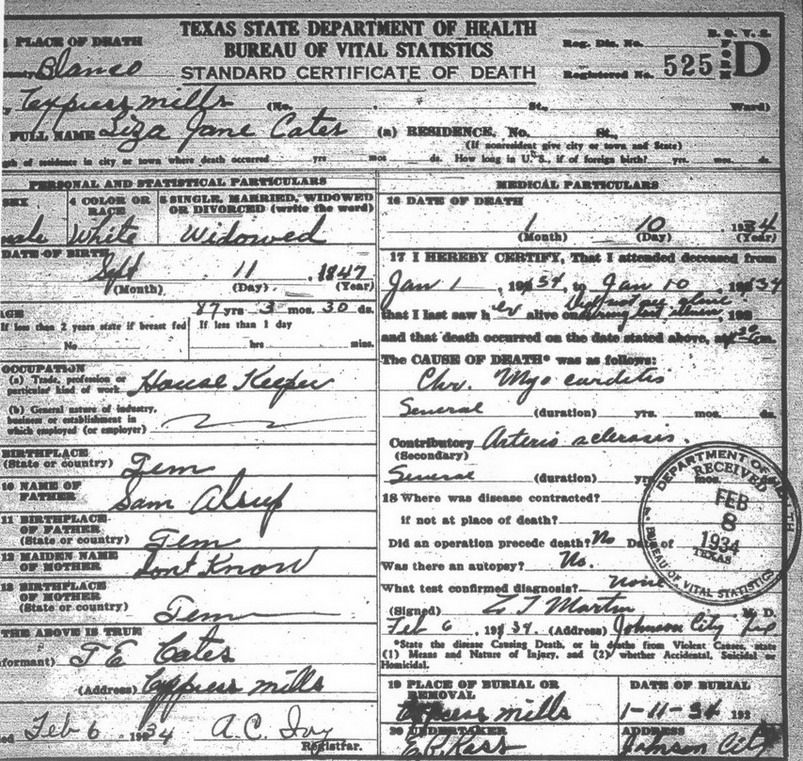 TEXAS STATE DEPARTMENT OF HEALTH
BUREAU OF VITAL STATISTICS
STANDARD CERTIFICATE OF DEATH
B. O. V. S.
FORM D
Reg. Dis. No.
Registered No. 525
PLACE OF DEATH
Blanco
Cypress mills (No. , St., Ward)
FULL NAME Liza Jane Cates (a) RESIDENCE, No. St.,
(If nonresident give city or town and State)
of residence in city or town where death occurred yrs mos ds. How long in U.S., if of foreign birth? yrs. mos. ds.
PERSONAL AND STATISTICAL PARTICULARS
SEX
4 COLOR OR RACE White
5 SINGLE, MARRIED, WIDOWED OR DIVORCED (write the word)
Widowed
DATE OF BIRTH
Sept 11 1847
(Month) (Day) (Year)
AGE 87 yrs 3 mos. 30 ds.
If less than 2 years state if breast fed
If less than 1 day
No hrs mins.
OCCUPATION
(a) Trade, profession or particular kind of work House Keeper
(b) General nature of industry, business or establishment in which employed (or employer)
BIRTHPLACE
(State or country) Tenn
10 NAME OF FATHER Sam Alsup
11 BIRTHPLACE OF FATHER
(State or country) Tenn
12 MAIDEN NAME OF MOTHER Dont Know
13 BIRTHPLACE OF MOTHER
(State or country) Tenn
THE ABOVE IS TRUE
formant) T E Cates
(Address) Cypress mills
Feb 6 1934 A.C. Ivy
Registrar.
MEDICAL PARTICULARS
16 DATE OF DEATH
1 10 1934
(Month) (Day) (Year)
17 I HEREBY CERTIFY, That I attended deceased from
Jan 1, 1934, to Jan 10, 1934
that I last saw her alive on Did not see alive during last illness, 192
and that death occurred on the date stated above, at
The CAUSE OF DEATH* was as follows:
Chr. Myo carditis
Several (duration) yrs. mos. ds.
Contributory Arterio sclerosis.
(Secondary)
Several (duration) yrs mos.
18 Where was disease contracted?
if not at place of death?
Did an operation precede death? No Date of
Was there an autopsy? No.
What test confirmed diagnosis? none
(Signed) Martin M. D.
Feb 6, 1934. (Address) Johnson City Tex
*State the disease Causing Death, or in deaths from Violent Causes, state
(1) Means and Nature of Injury, and (2) whether Accidental, Suicidal or
Homicidal.
19 PLACE OF BURIAL OR REMOVAL
Cypress mills
DATE OF BURIAL
1-11-34 192
20 UNDERTAKER
E.P. Ross
ADDRESS
Johnson City
DEPARTMENT OF HEALTH
RECEIVED
FEB
8
1934
TEXAS
BUREAU OF VITAL STATISTICS